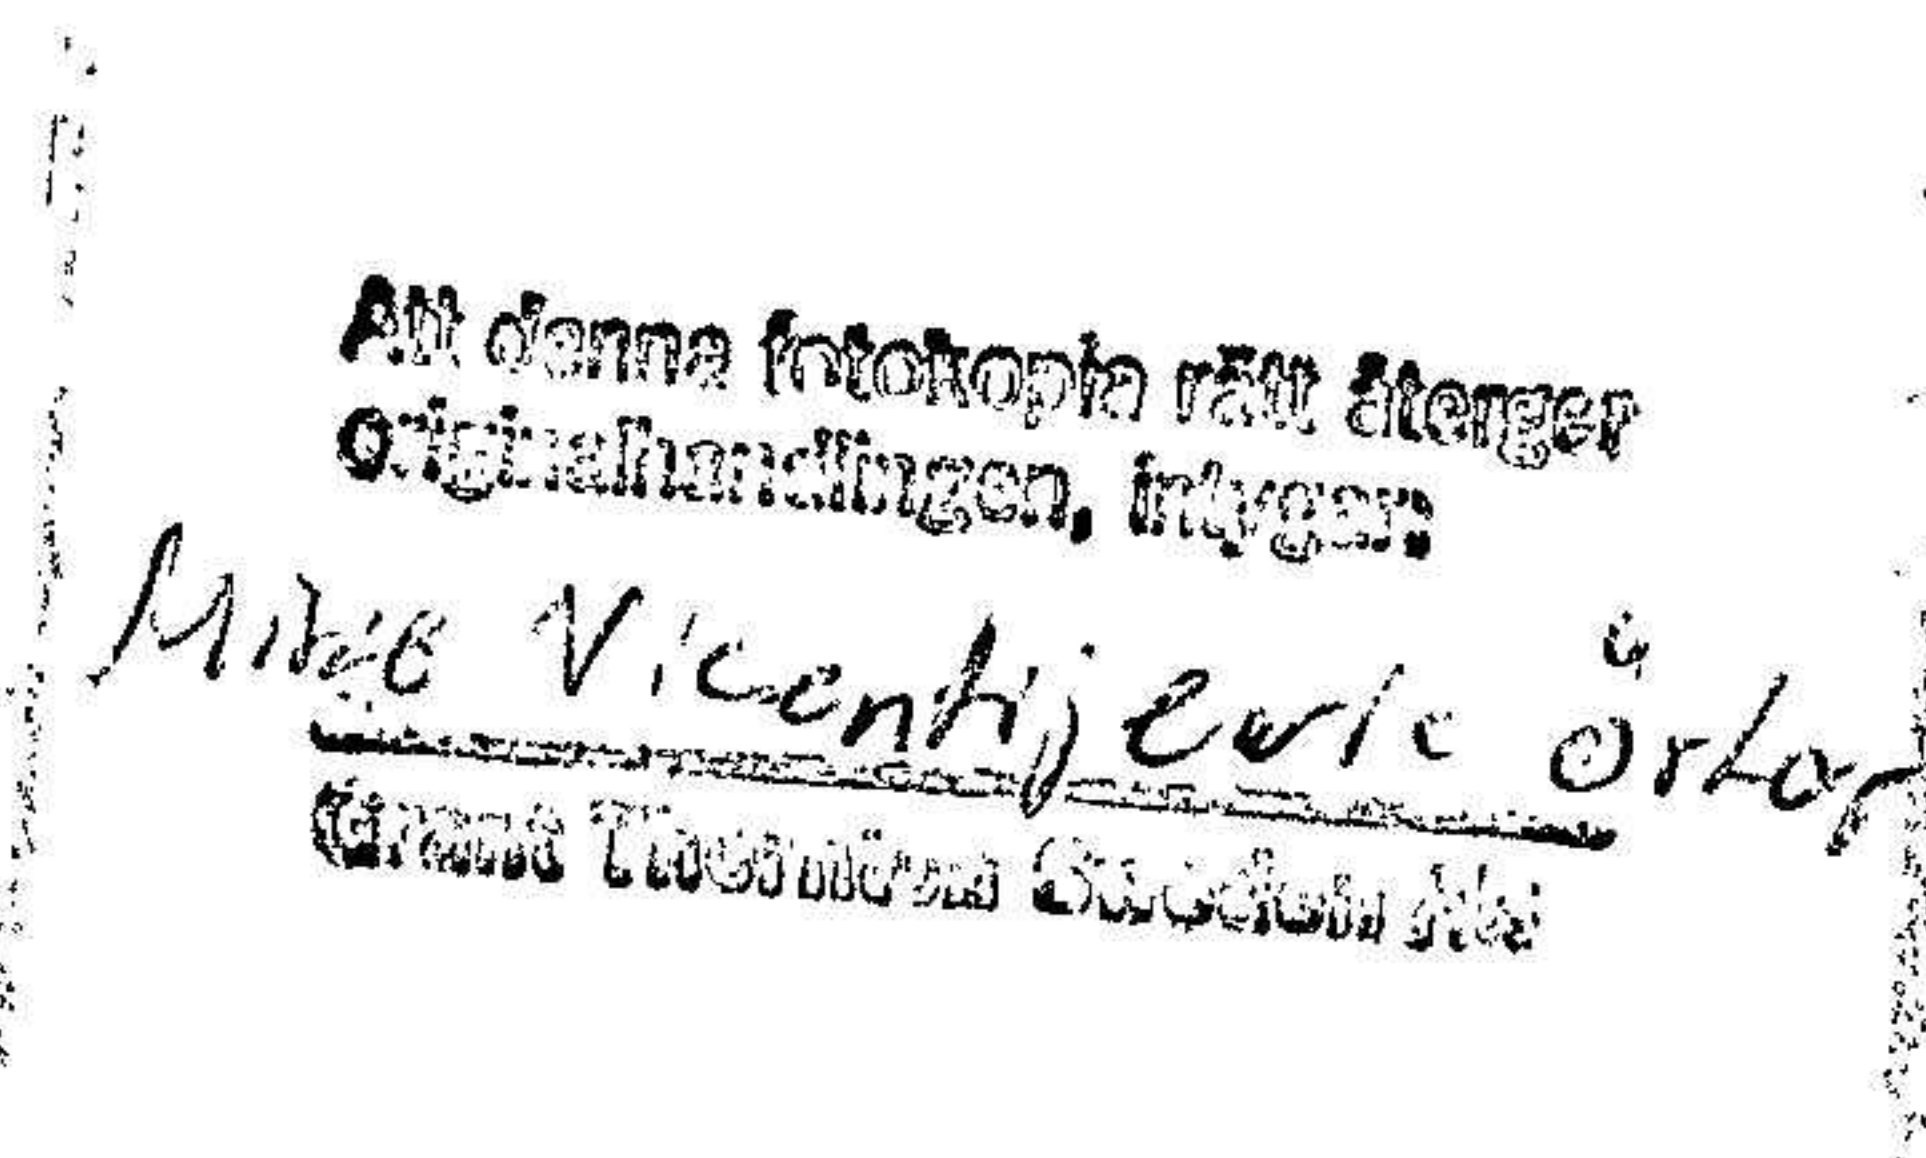 Att denna fotokopia rätt återger
originalhandlingen, intygar:
Vicentijevic
Grant Thornton Sweden AB